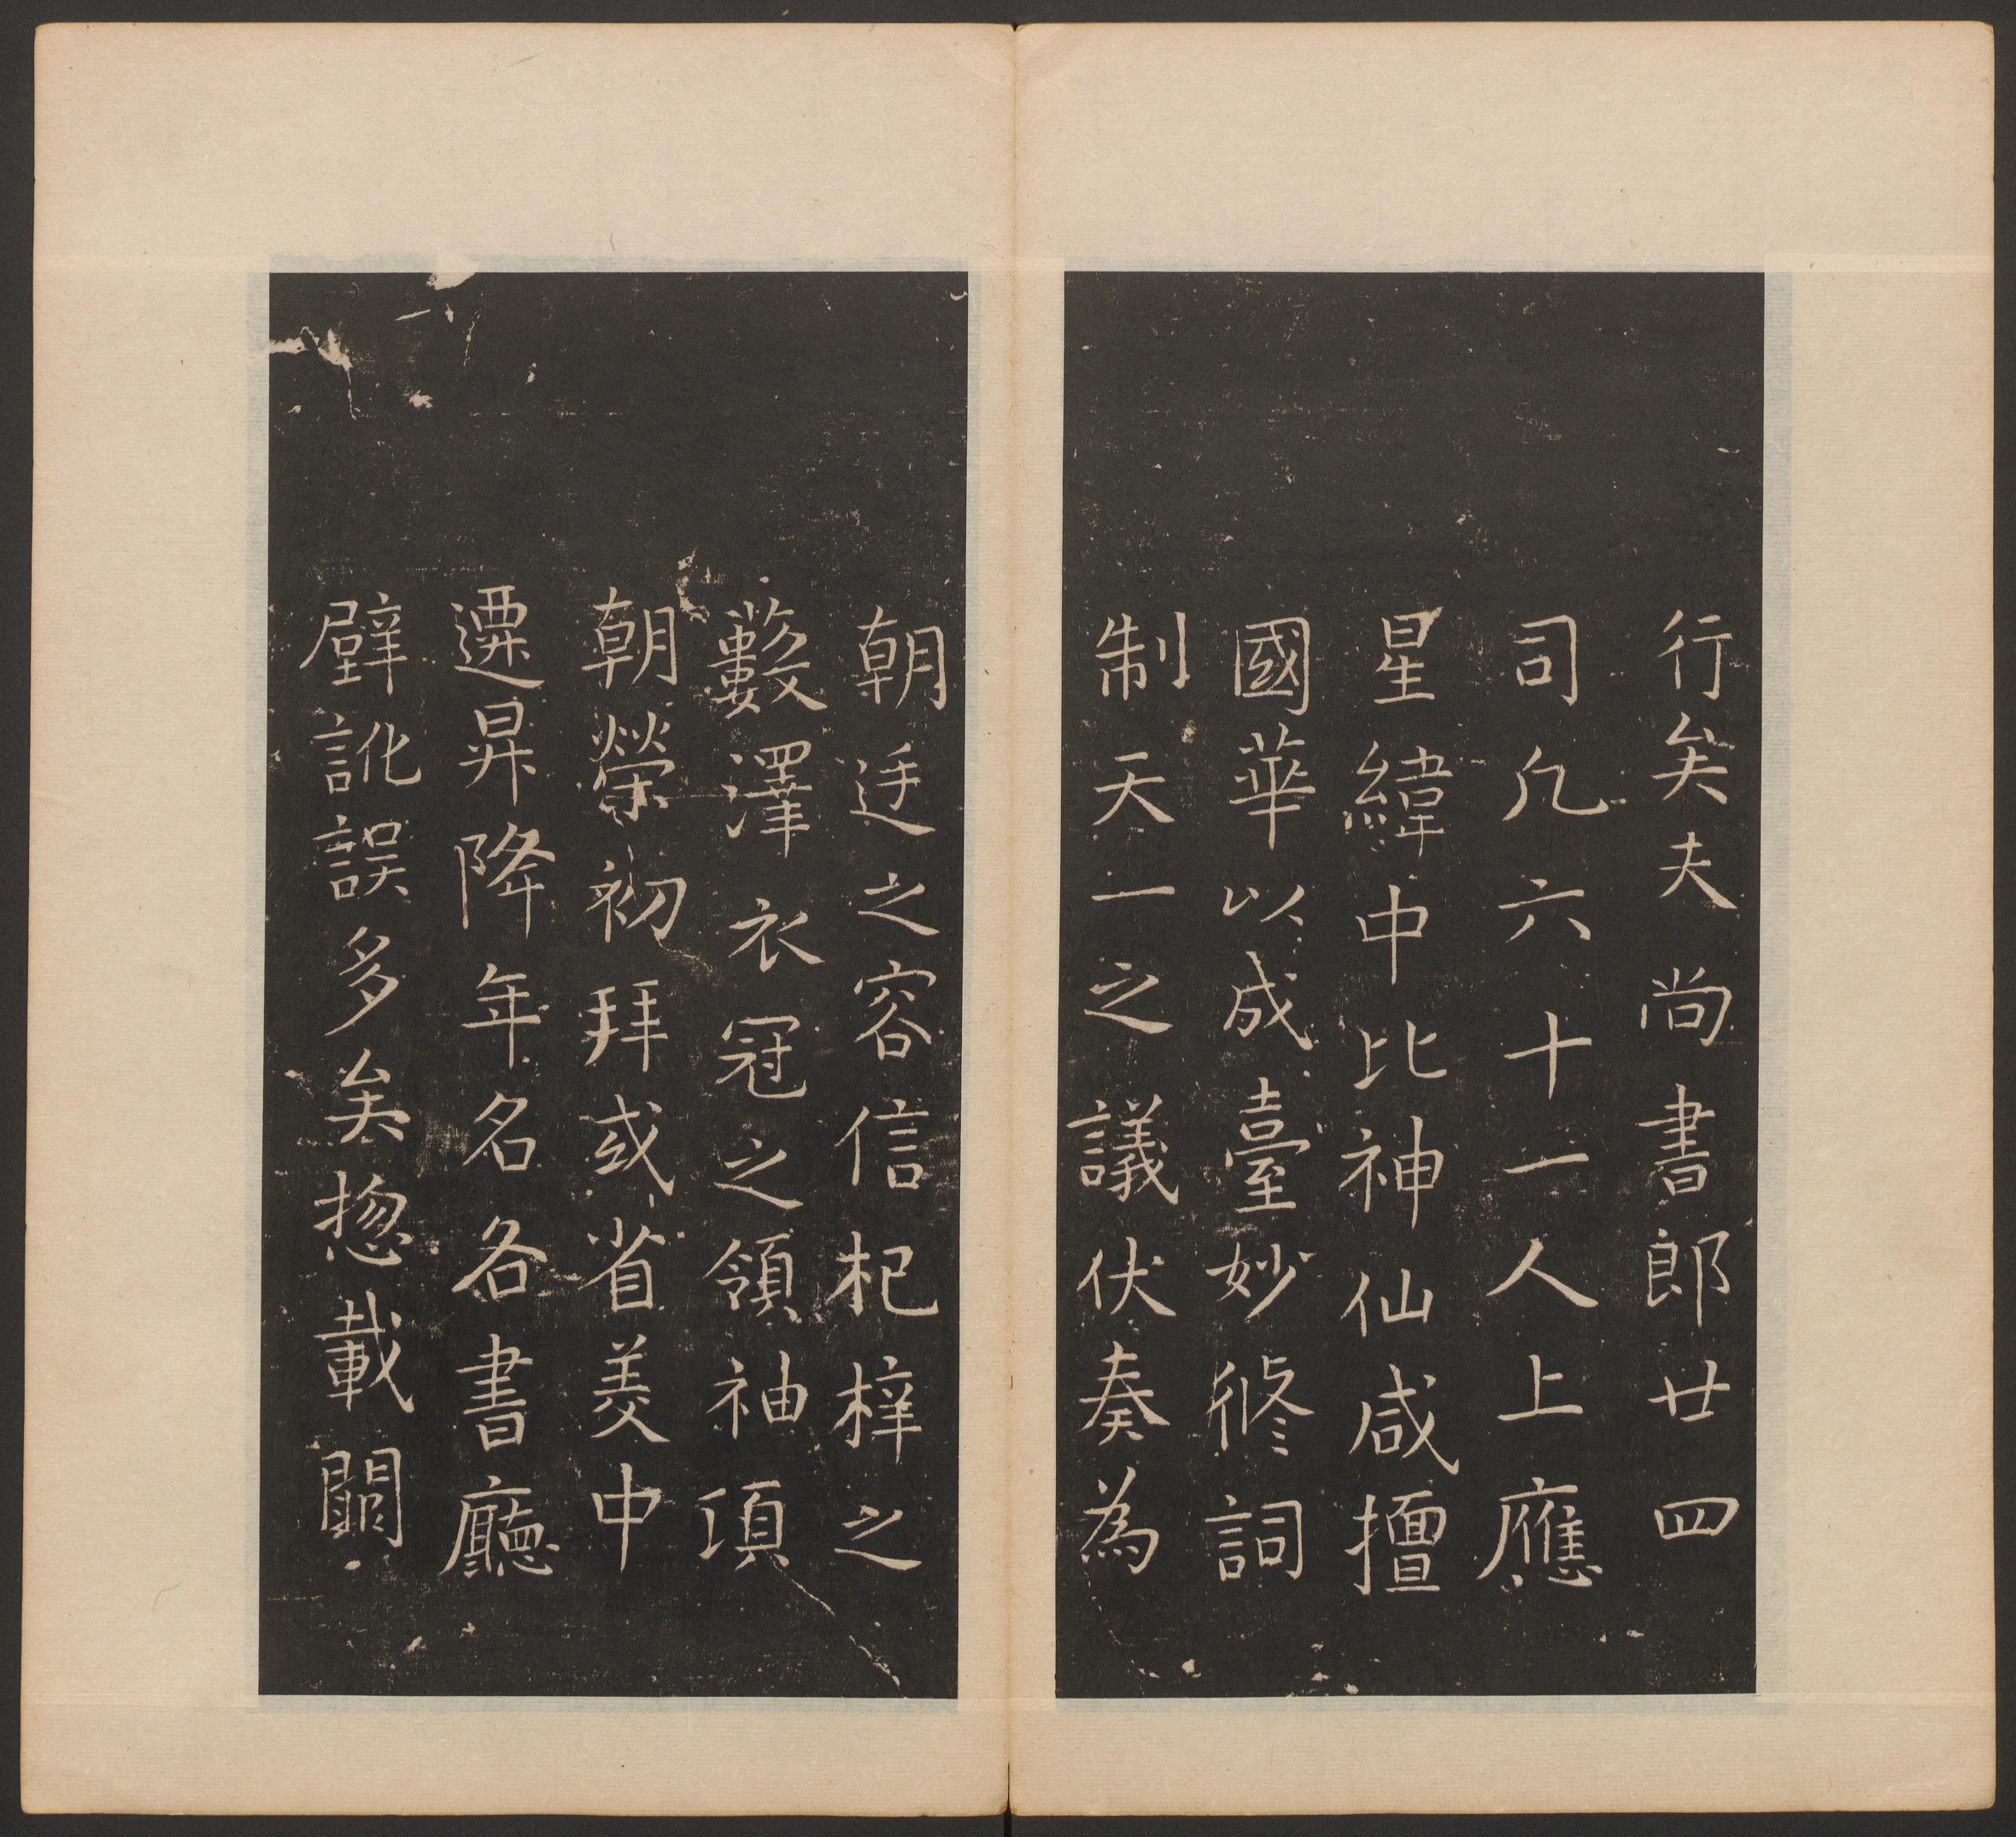 行矣夫尚書郎廿四
司凢六十一人上應
星緯中比神仙咸擅
國華以成臺妙修詞
制天一之議伏奏為
朝廷之容信杞梓之
藪澤衣冠之領袖頃
朝榮初拜或省美中
遷昇降年名各書廳
壁訛誤多矣揔載闕